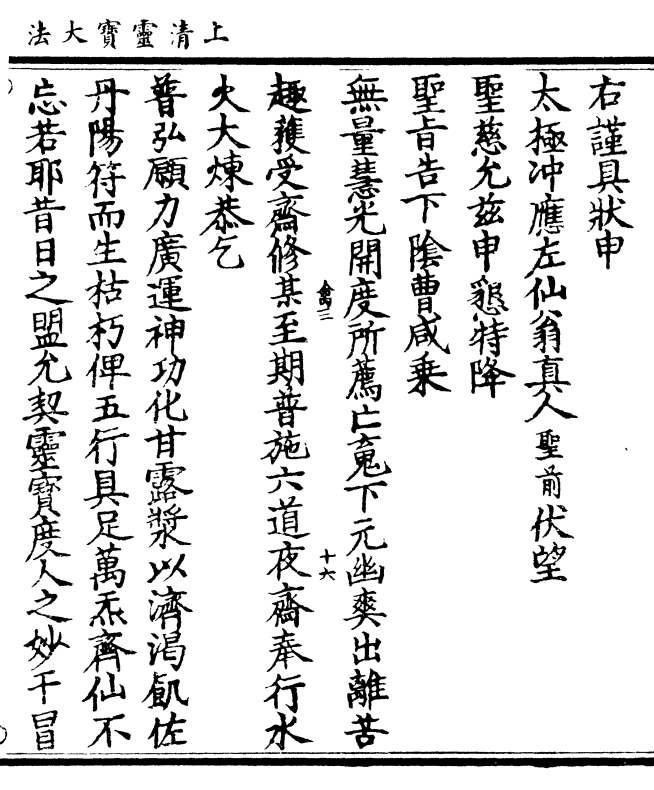 上清靈寶大法
右謹具狀申
太極沖應左仙翁真人聖前伏望
聖慈允茲申懇特降
聖旨告下陰曹咸乗
無量慧光開度所薦亡䰟下元幽爽出離苦
趣獲受齋修某至期普施六道夜齋奉行水
禽三
十六
火大煉恭乞
普弘願力廣運神功化甘露漿以濟渴飢佐
丹陽符而生枯朽俾五行具足萬炁齊仙不
忘若耶昔日之盟允契靈寶度人之妙干冒